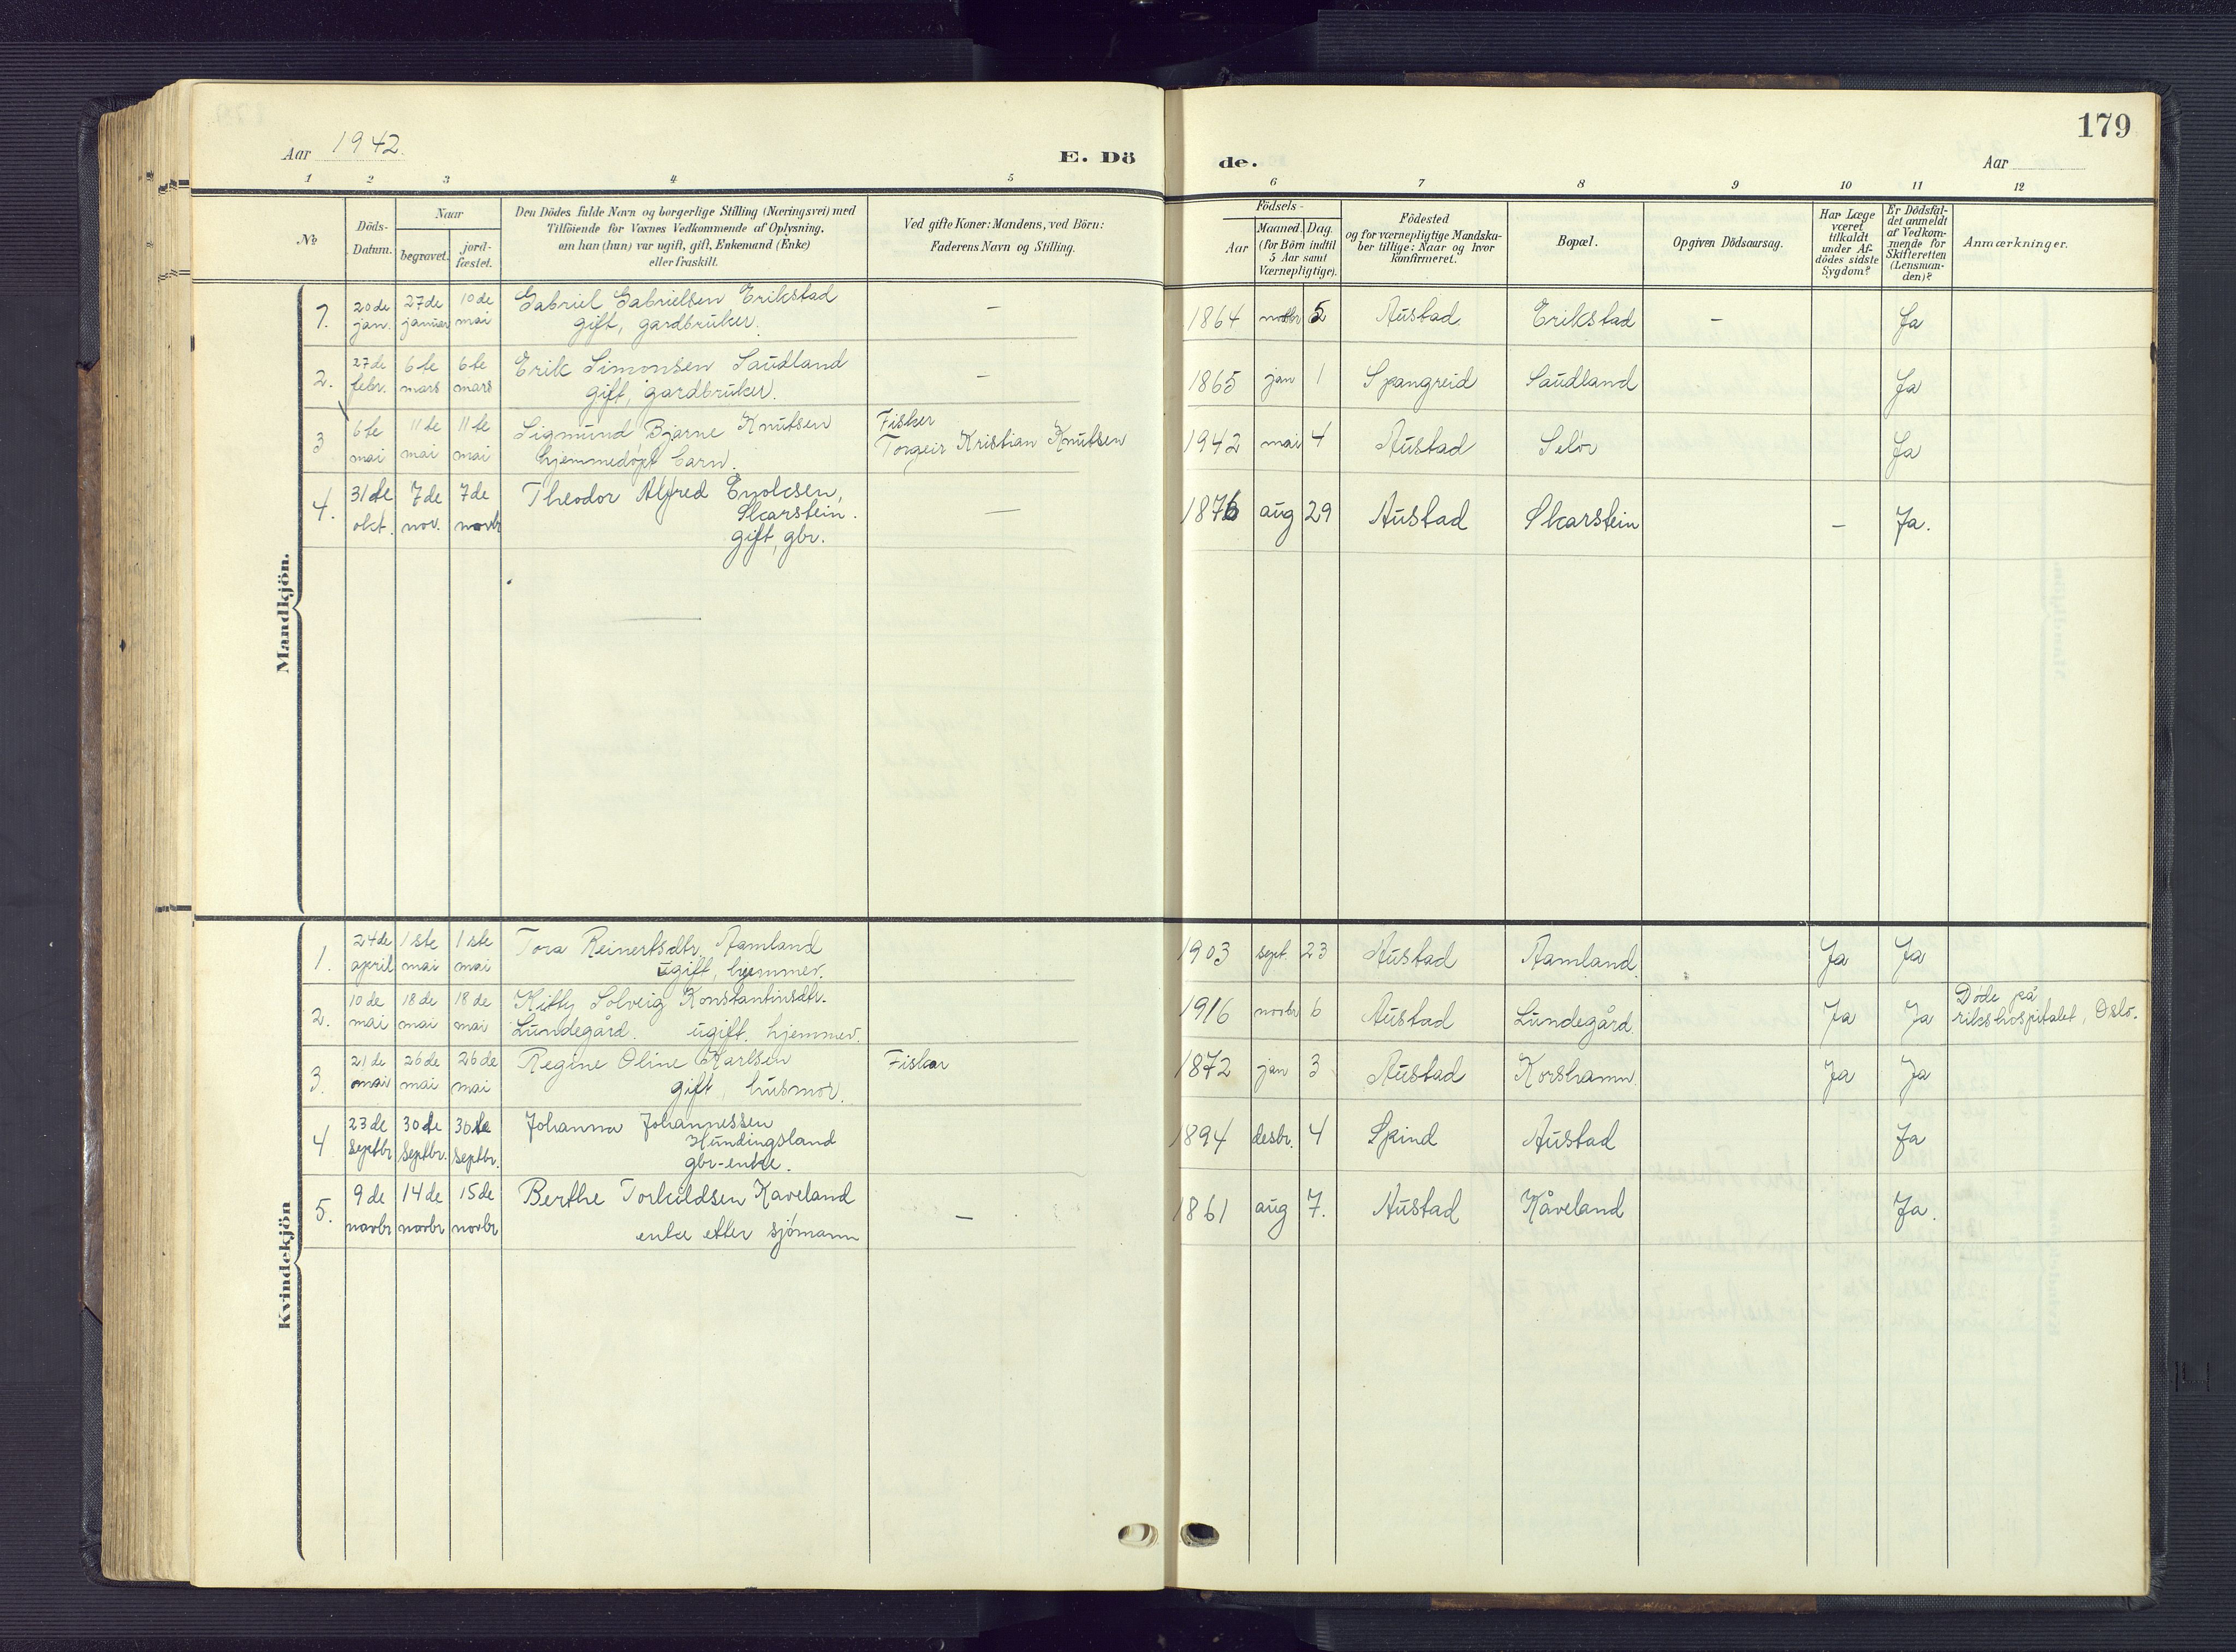 Aar 1942.
E. Dö
de.
179
Aar
1 2 3 4 5 6 7 8 9 10 11 12
No
Döds-Datum.
Naar
begravet.
jord-fæstet.
Den Dödes fulde Navn og borgerlige Stilling (Næringsvei) med
Tilföiende for Voxnes Vedkommende af Oplysning,
om han (hun) var ugift, gift, Enkemand (Enke)
eller fraskilt.
Ved gifte Koner: Mandens, ved Börn:
Faderens Navn og Stilling.
Födsels-
Aar
Maaned.
Dag.
(for Börn indtil
5 Aar samt
Værnepligtige).
Födested
og for værnepligtige Mandska-
ber tillige: Naar og hvor
Konfirmeret.
Bopæl.
Opgiven Dödsaarsag.
Har Læge
været
tilkaldt
under Af-
dödes sidste
Sygdom?
Er Dödsfal-
det anmeldt
af Vedkom-
mende for
Skifteretten
(Lensman-
den)?
Anmærkninger.
Mandkjön.
1. 20de jan. 27de januar 10de mai Gabriel Gabrielsen Erikstad
gift, gardbruker. — 1864 novbr 5 Austad Erikstad - Ja
2. 27de febr. 6te mars 6te mars Erik Simonsen Saudland
gift, gardbruker. — 1865 jan 1 Spangreid Saudland Ja
3 6te mai 11te mai 11te mai Sigmund Bjarne Knutsen
hjemmedøpt barn. Fisker
Torgeir Kristian Knutsen 1942 mai 4 Austad Selör Ja
4. 31de okt. 7de nov. 7de novbr Theodor Alfred Enoksen,
Skarstein.
gift, gbr. — 1876 aug 29 Austad Skarstein - Ja.
Kvindekjön
1. 24de april 1ste mai 1ste mai Tora Reinertsdtr. Aamland
ugift, hjemmev. 1903 sept. 23 Austad Aamland. Ja Ja
2. 10de mai 18de mai 18de mai Kitty Solveig Konstantinsdtr.
Lundegård. ugift. hjemmev. 1916 novbr 6 Austad Lundegård. Ja Ja Døde på
rikshospitalet, Oslo.
3. 21de mai 26de mai 26de mai Regine Oline Karlsen
gift, husmor. Fisker 1872 jan 3 Austad Korshamn. Ja Ja
4 23de Septbr 30de Septbr. 30te septbr. Johanna Johannessen
Hundingsland
gbr-enke. 1894 desbr. 4 Spind Austad Ja
5. 9de novbr 14de novbr 15de novbr Berthe Torkildsen Kaveland
enke etter sjömann — 1861 aug 7. Austad Kåveland Ja.